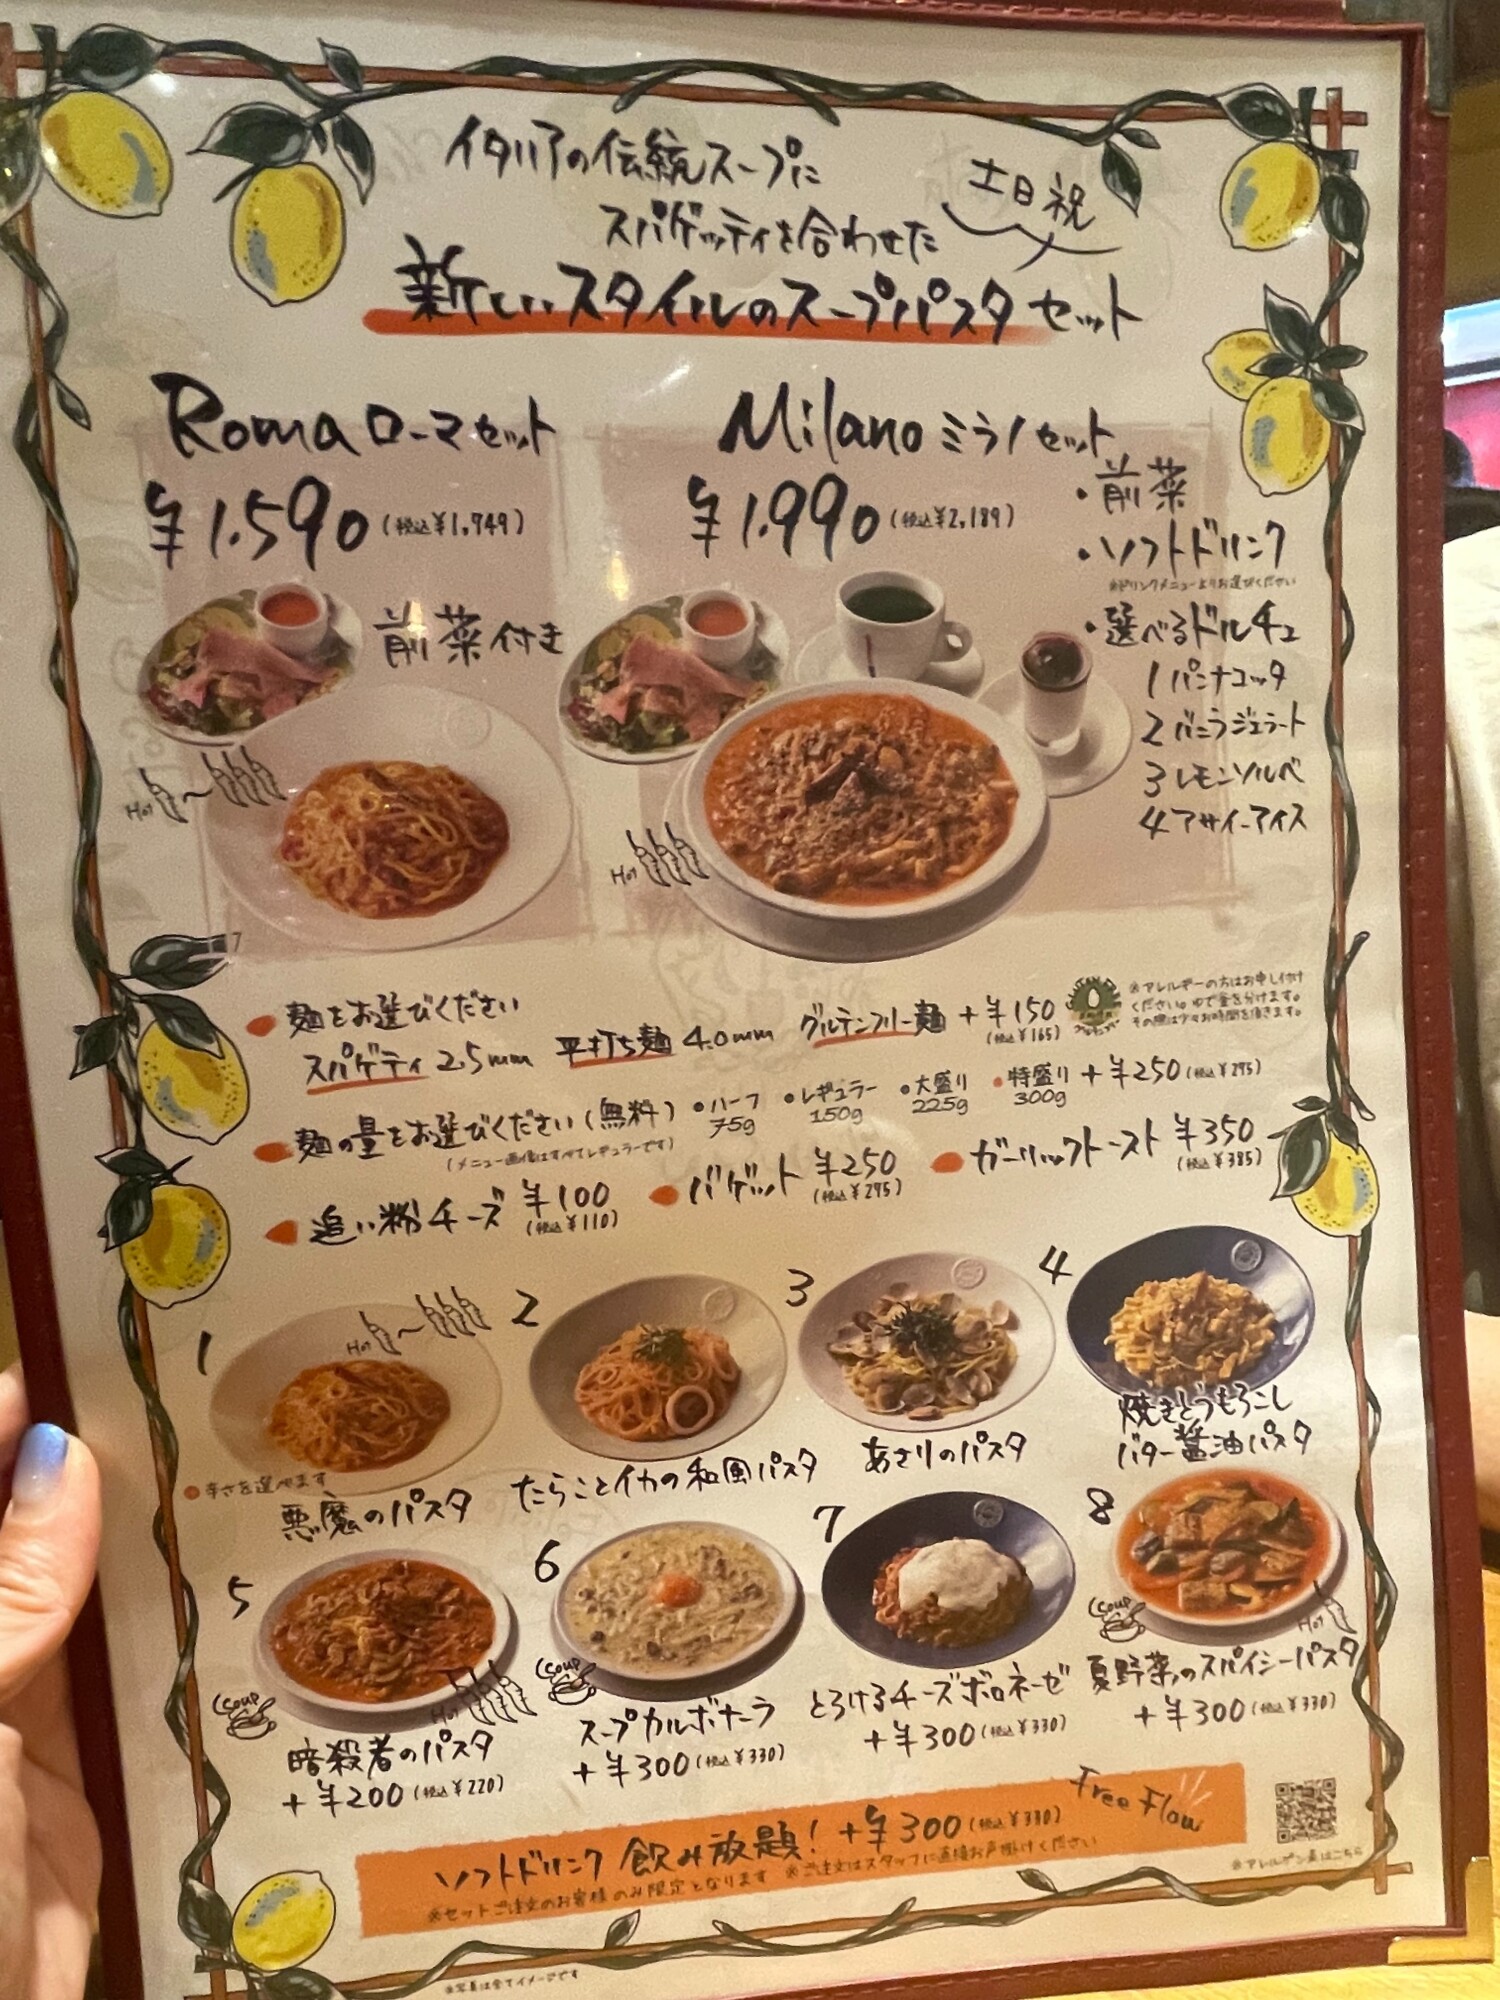 イタリアの伝統スープに
スパゲッティを合わせた
土日祝
新しいスタイルのスープパスタセット
Roma ローマセット
¥1.590 (税込¥1,749)
前菜付き
Hot ~
Milano ミラノセット
¥1.990 (税込¥2,189)
・前菜
・ソフトドリンク
※ドリンクメニューよりお選びください
・選べるドルチェ
1 パンナコッタ
2 バニラジェラート
3 レモンソルベ
4 アサイーアイス
Hot
麺をお選びください
スパゲティ 2.5mm 平打ち麺 4.0mm グルテンフリー麺 +¥150
(税込¥165)
※アレルギーの方はお申し付け
ください。ゆで釜を分けます。
その際は少々お時間を頂きます。
麺の量をお選びください(無料) ・ハーフ 75g ・レギュラー 150g ・大盛り 225g ・特盛り 300g +¥250(税込¥275)
(メニュー画像はすべてレギュラーです)
追い粉チーズ ¥100
(税込¥110)
バゲット ¥250
(税込¥275)
ガーリックトースト ¥350
(税込¥385)
1
Hot ~
●辛さを選べます
悪魔のパスタ
2
たらことイカの和風パスタ
3
あさりのパスタ
4
焼きとうもろこし
バター醤油パスタ
5
Soup
Hot
暗殺者のパスタ
+¥200(税込¥220)
6
Soup
スープカルボナーラ
+¥300(税込¥330)
7
とろけるチーズボロネーゼ
+¥300(税込¥330)
8
Soup
Hot
夏野菜のスパイシーパスタ
+¥300(税込¥330)
ソフトドリンク 飲み放題! +¥300(税込¥330) Free Flow
※セットご注文のお客様のみ限定となります ※ご注文はスタッフに直接お声掛けください
※アレルゲン表はこちら
※写真は全てイメージです